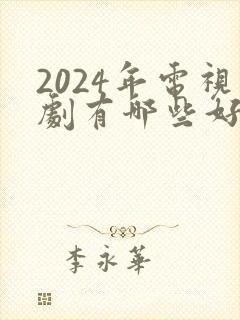 2024年電視
劇有哪些好
李永華